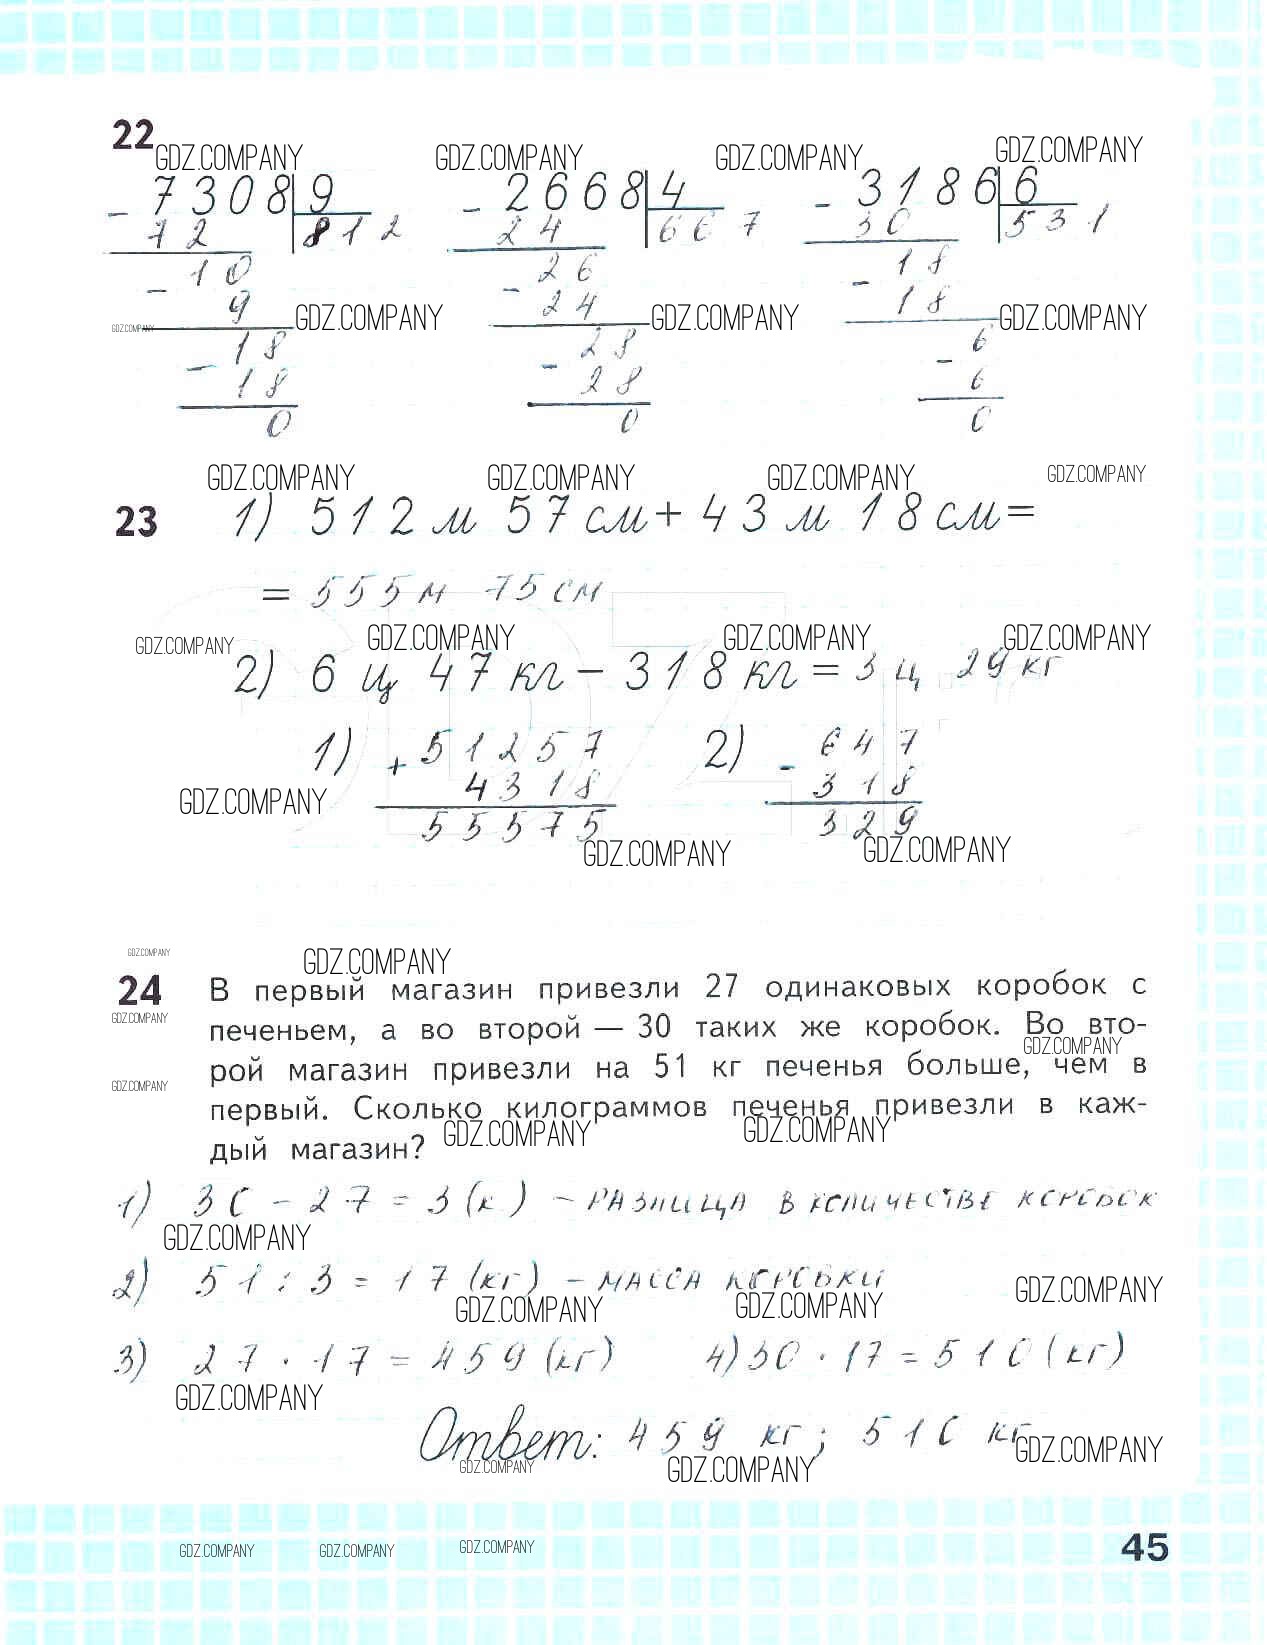 22
GDZ.COMPANY GDZ.COMPANY GDZ.COMPANY GDZ.COMPANY
- 7308 9 - 2668 4 - 3186 6
72 812 24 667 30 531
- 10 - 26 - 18
9 24 18
GDZ.COMPANY GDZ.COMPANY GDZ.COMPANY GDZ.COMPANY
- 18 - 28 - 6
18 28 6
0 0 0
GDZ.COMPANY GDZ.COMPANY GDZ.COMPANY GDZ.COMPANY
23 1) 512 м 57 см + 43 м 18 см =
= 555 м 75 см
GDZ.COMPANY GDZ.COMPANY GDZ.COMPANY GDZ.COMPANY
2) 6 ц 47 кг – 318 кг = 3 ц 29 кг
1) + 51257 2) - 647
4318 318
GDZ.COMPANY
55575 329
GDZ.COMPANY GDZ.COMPANY
GDZ.COMPANY GDZ.COMPANY
24 В первый магазин привезли 27 одинаковых коробок с
GDZ.COMPANY
печеньем, а во второй — 30 таких же коробок. Во вто-
GDZ.COMPANY
рой магазин привезли на 51 кг печенья больше, чем в
GDZ.COMPANY
первый. Сколько килограммов печенья привезли в каж-
GDZ.COMPANY GDZ.COMPANY
дый магазин?
1) 30 – 27 = 3 (к) – разница в количестве коробок
GDZ.COMPANY
2) 51 : 3 = 17 (кг) – масса коробки
GDZ.COMPANY GDZ.COMPANY GDZ.COMPANY
3) 27 · 17 = 459 (кг) 4) 30 · 17 = 510 (кг)
GDZ.COMPANY
Ответ: 459 кг; 510 кг
GDZ.COMPANY GDZ.COMPANY GDZ.COMPANY
GDZ.COMPANY GDZ.COMPANY GDZ.COMPANY
45